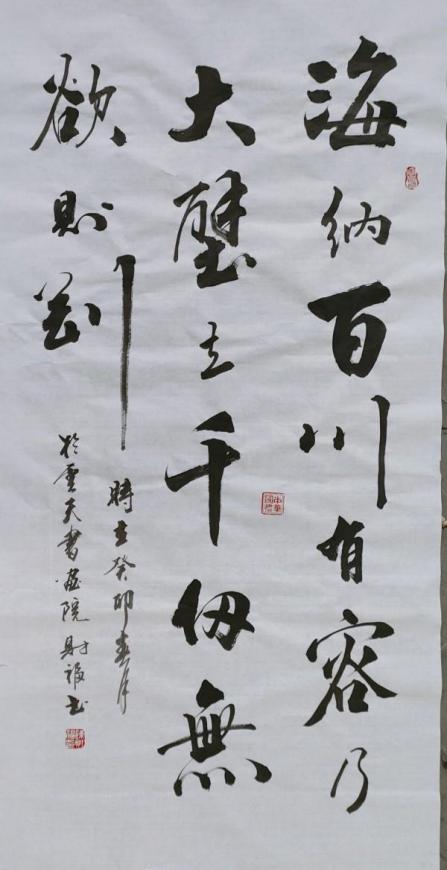 海納百川有容乃
大壁立千仞無
欲則剛
時在癸卯春月
於雲天書畫院 书